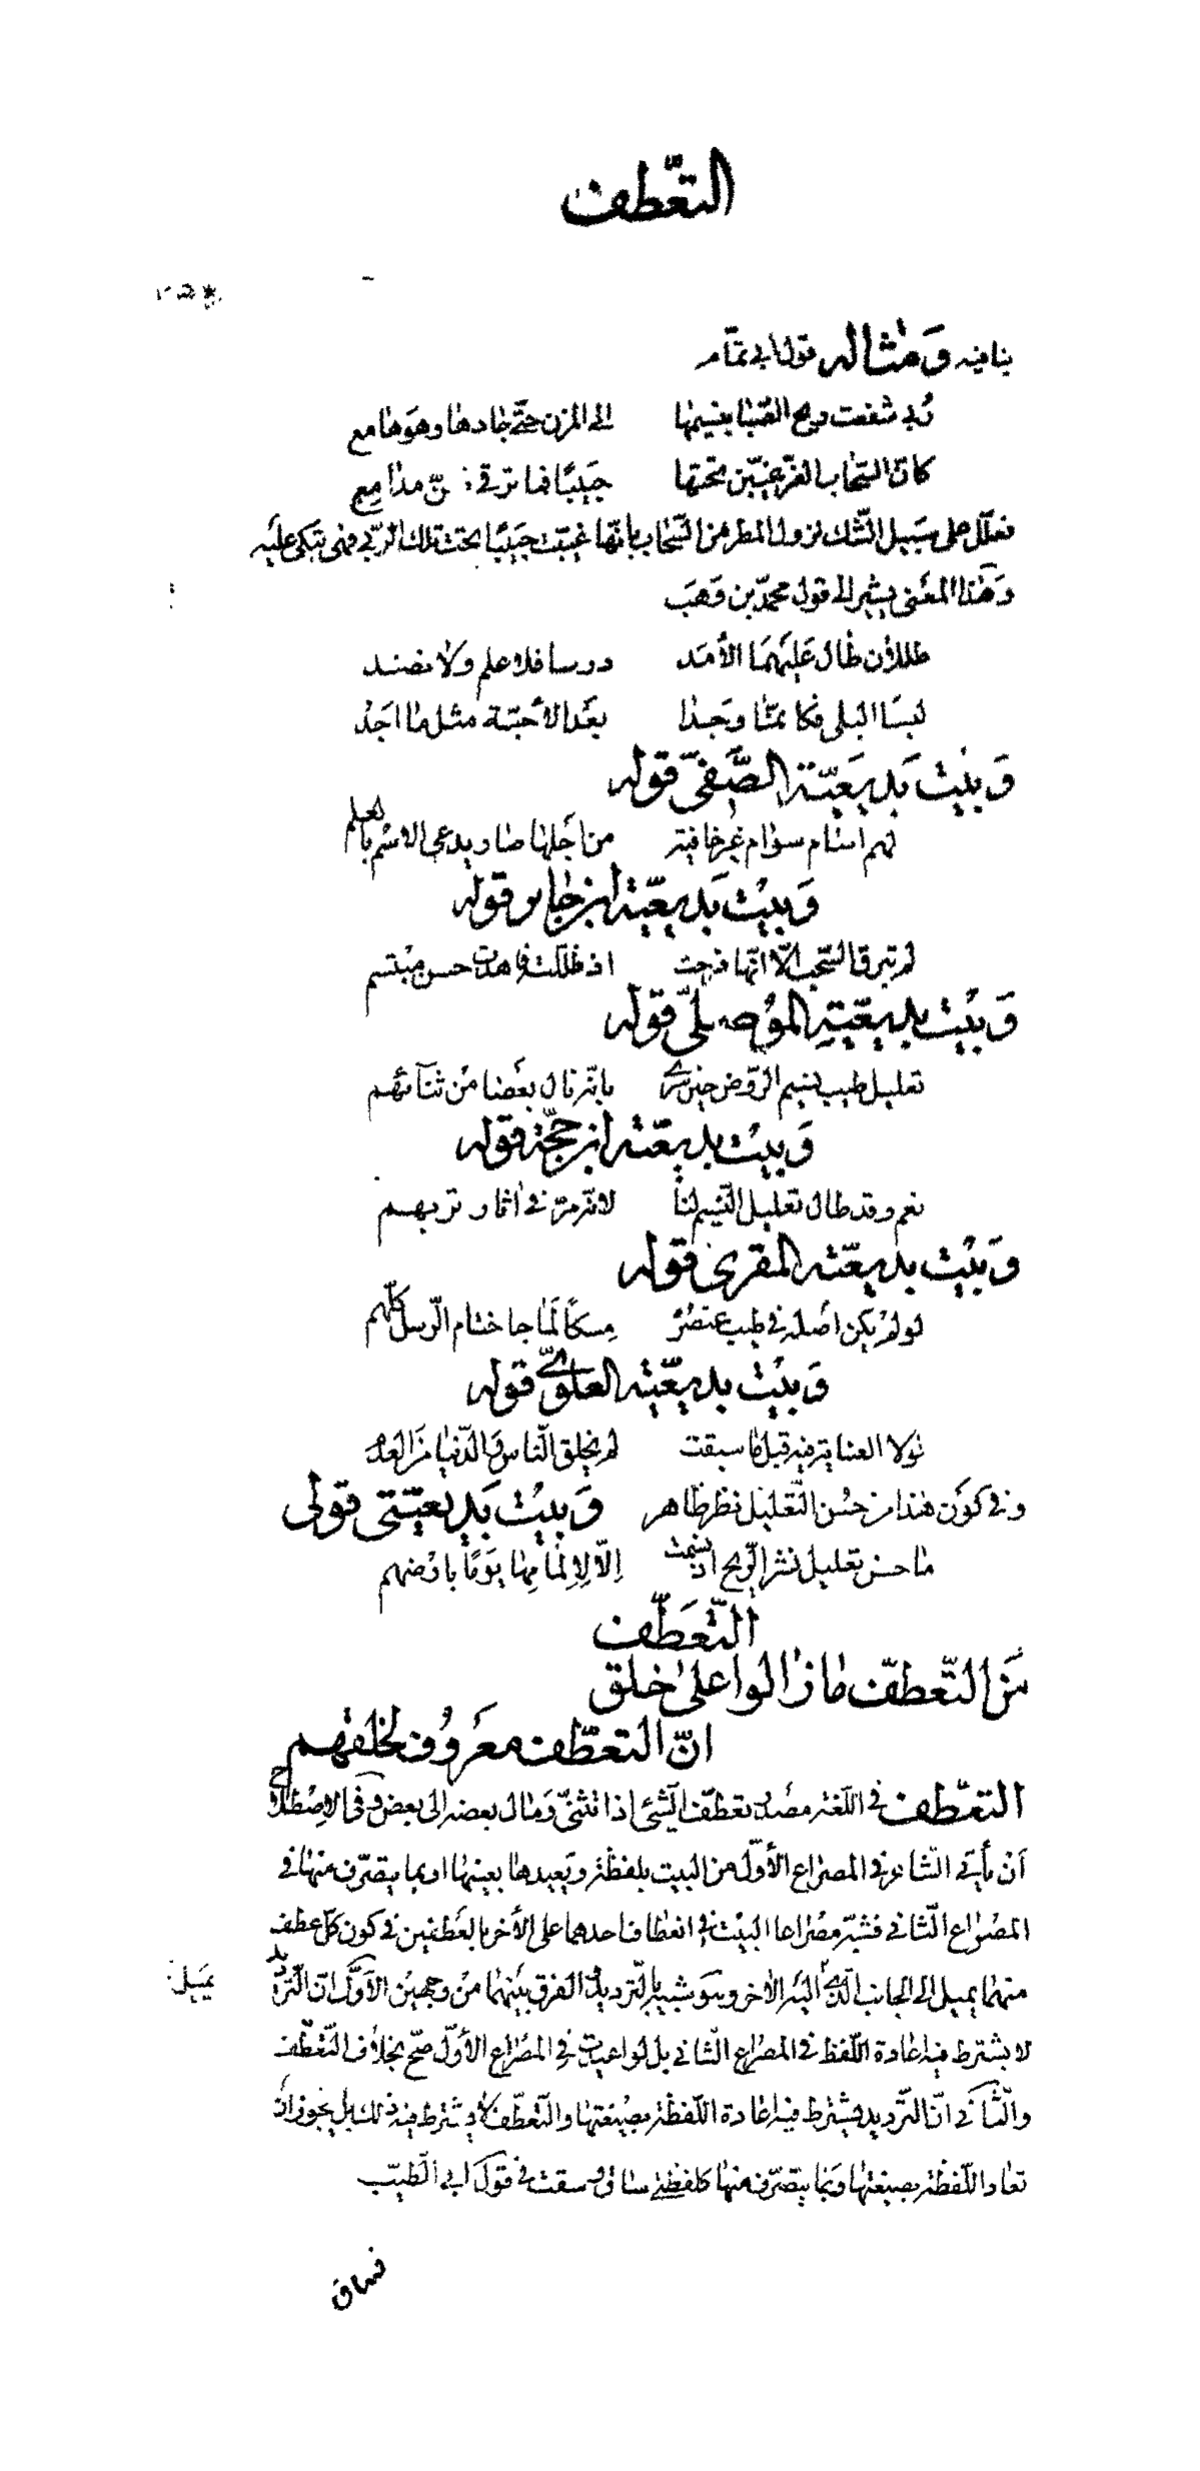 التعطف
ينافيه ومثاله قول أبي تمام
ربى شفعت ريح الصبا بنسيمها إلى المزن حتى جادها وهو هامع
كان السحاب الغر غيبن تحتها حبيبًا فما ترقى لهن مدامع
فعلّل على سبيل الشك نزول المطر من السحاب بانها غيبت حبيبًا تحت تلك الربى فهى تبكى عليه
وهذا المعنى يشير الى قول محمد بن وهب
طللان طال عليهما الأمد درسا فلا علم ولا نضد
لبسا البلى فكانما وجدا بعد الأحبة مثل ما اجد
وبيت بديعية الصفى قوله
لهم اسام سوام غير خافية من اجلها صار يدعى الاسم بالعلم
وبيت بديعية ابن جابر قوله
لم تبرق السحب الا انها فرحت اذ ظللته فابدت حسن مبتسم
وبيت بديعية الموصلى قوله
تعليل طيب نسيم الروض حين سرى بانه نال بعضا من ثنائهم
وبيت بديعية ابن حجة قوله
نعم وقد طال تعليل النسيم لنا لانه مر فى اثار تربهم
وبيت بديعية المقرى قوله
لو لم يكن اصله فى طيب عنصره مسكًا لما جا ختام الرسل كلهم
وبيت بديعية العلوى قوله
لولا العناية فيه قبل ما سبقت لم يخلق الناس والدنيا من العدم
وفى كون هذا من حسن التعليل نظر ظاهر وبيت بديعيتى قولى
ما حسن تعليل نشر الريح اذ نسمت الا لالمامها يومًا بارضهم
التعطف
من التعطف ما زالوا على خلق
ان التعطف معروف لخلقهم
التعطف فى اللغة مصدر تعطف الشئ اذا انثنى ومال بعضه الى بعض وفى الاصطلاح
ان يأتى الشاعر فى المصراع الأول من البيت بلفظة ويعيدها بعينها او بما يتصرف منها فى
المصراع الثانى فشبه مصراعا البيت فى انعطاف احدهما على الأخر بالعطفين فى كون كل عطف
منهما يميل الى الجانب الذى اليه الأخر وهو شبيه بالترديد والفرق بينهما من وجهين الأول ان الترديد
يميل
لا يشترط فيه اعادة اللفظ فى المصراع الثانى بل لو اعيدت فى المصراع الأول صح بخلاف التعطف
والثانى ان الترديد يشترط فيه اعادة اللفظة بصيغتها والتعطف لا يشترط فيه ذلك بل يجوز ان
تعاد اللفظة بصيغتها وبما يتصرف منها كلفظة ساق وسقت فى قول ابى الطيب
فساق